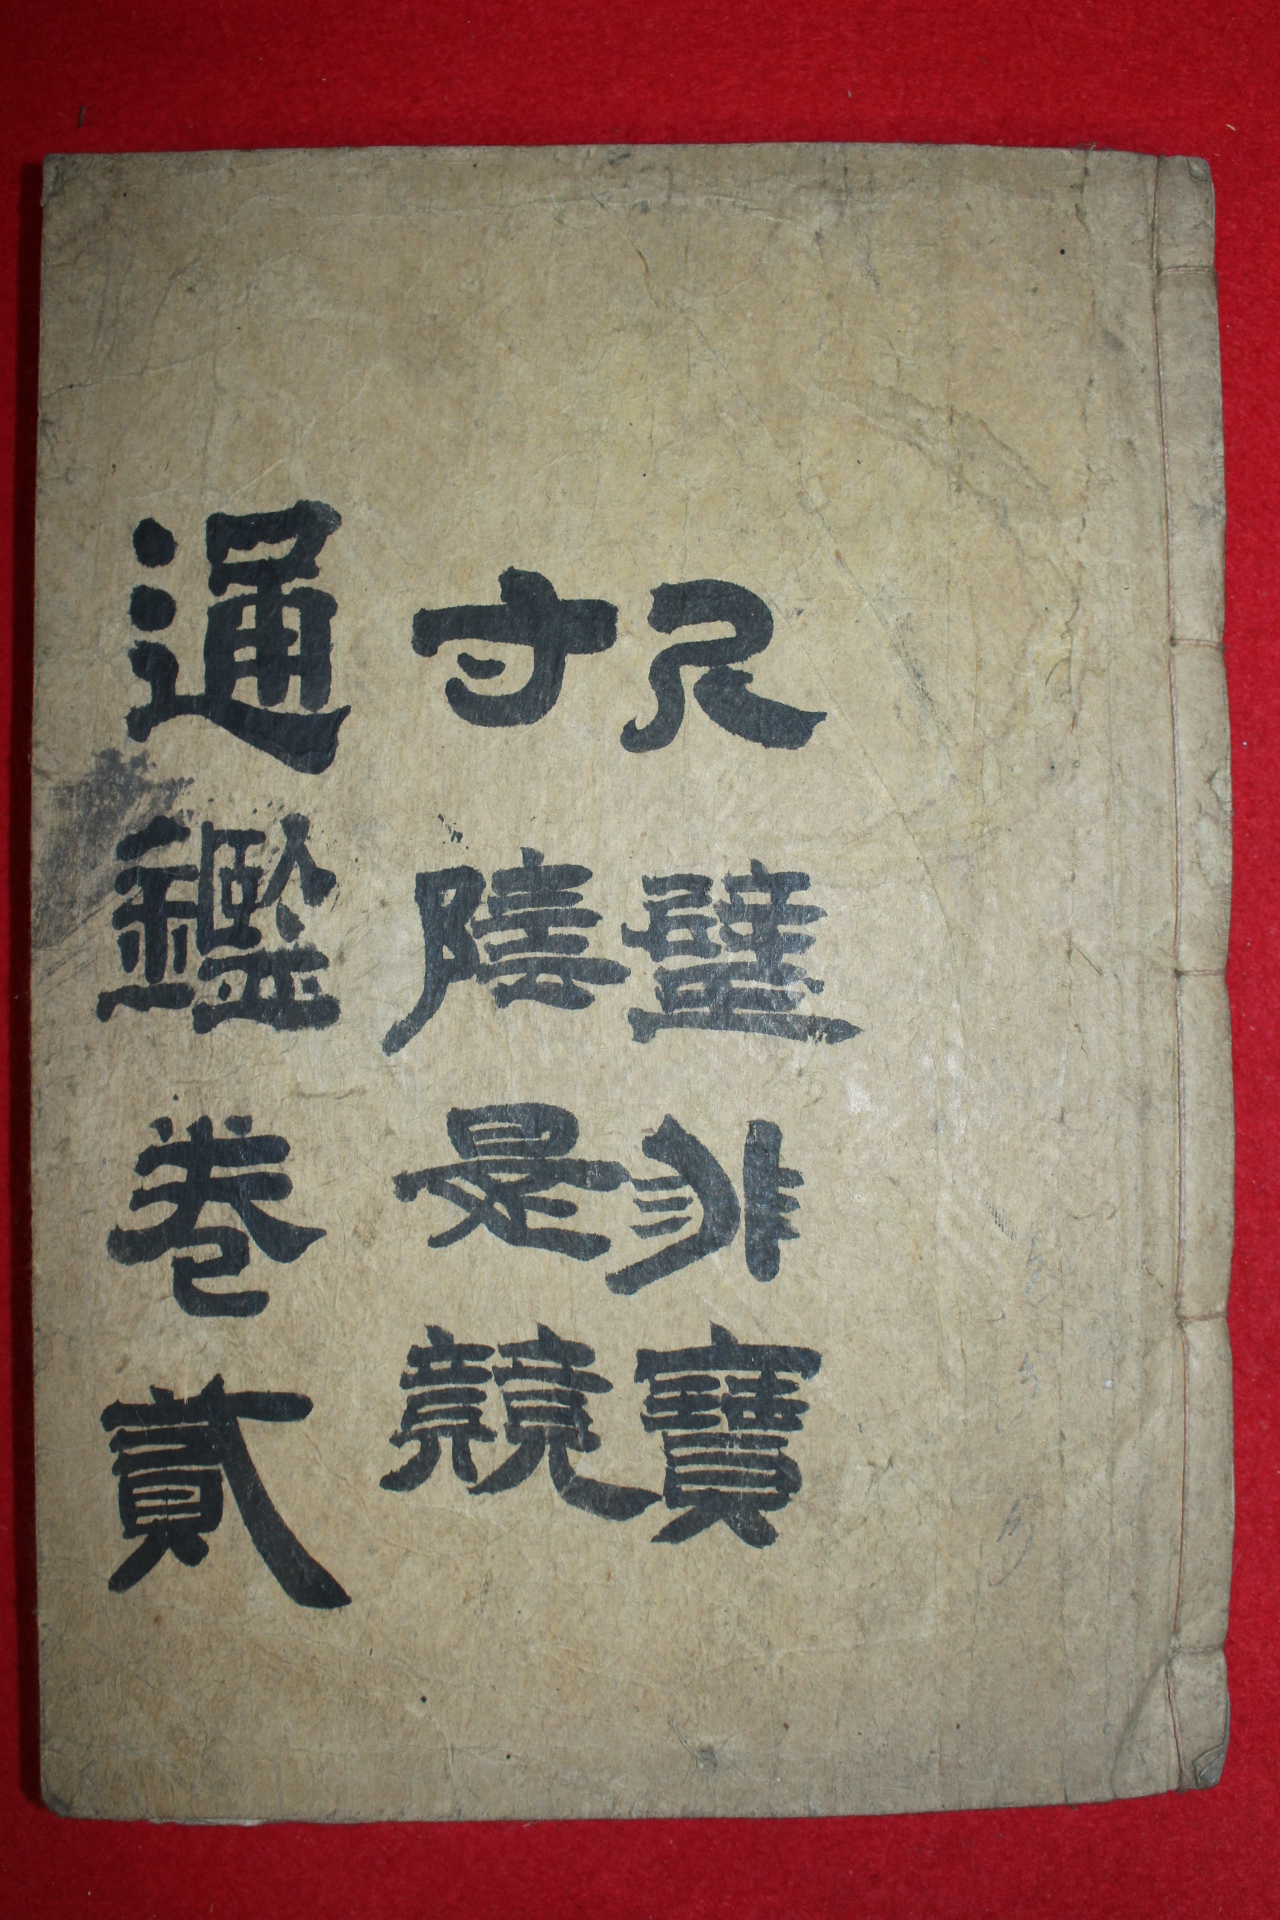 尺璧非寶
寸陰是競
通鑑卷貳